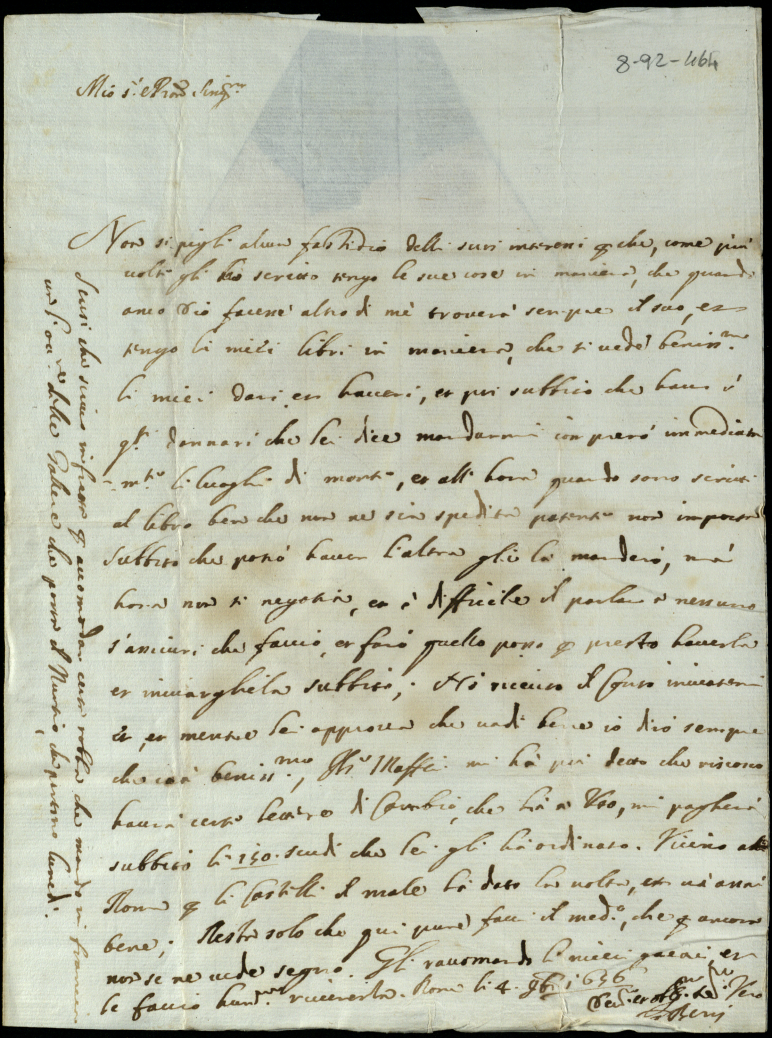 8-92-464
Mio s.r e Pron Sing.re
Non si pigli alcun fastidio delli suoi interessi che, come più
volte gli hò scritto tengo le sue cose in maniera, che quando
anco Dio facesse altro di mè troverà sempre il suo, et
tengo li miei libri in maniera, che si vede beniss.mo
li miei dari et haveri, et poi subbito che haverò
q.ti dannari che lei dice mandarmi comprerò immediata
m.te li luoghi di monte, et all hora quando sono scritti
al libro ben che non ne sia spedita patente non importa
subbito che potrò haver l'altra gli la manderò, mà
hora non si negotia, et è difficile il parlar a nessuno
s'assicuri che faccio, et farò quello posso presto haverla
et inviarghela subbito; Hò ricevuto il Conto
et mentre lei approva che vadi bene io dirò sempre
che stà beniss.mo, Maffei mi hà poi detto che riscosso
haverà certe lettere di Cambio, che hà a Uso, mi pagherà
subbito li 150 scudi che lei gli hà ordinato. Vicino a
Roma li Castelli il male hà dato la volta, et và assai
bene; Resta solo che qui pure facci il med.o, che ancora
non se ne vede segno. Gli raccomando li miei, et
le faccio riverenza. Roma li 4 9bre 1656
Scusi che scrivo in fretta accomodar certe robbe che mando in
delle Galere che porta il Nuntio, che partono lunedì.